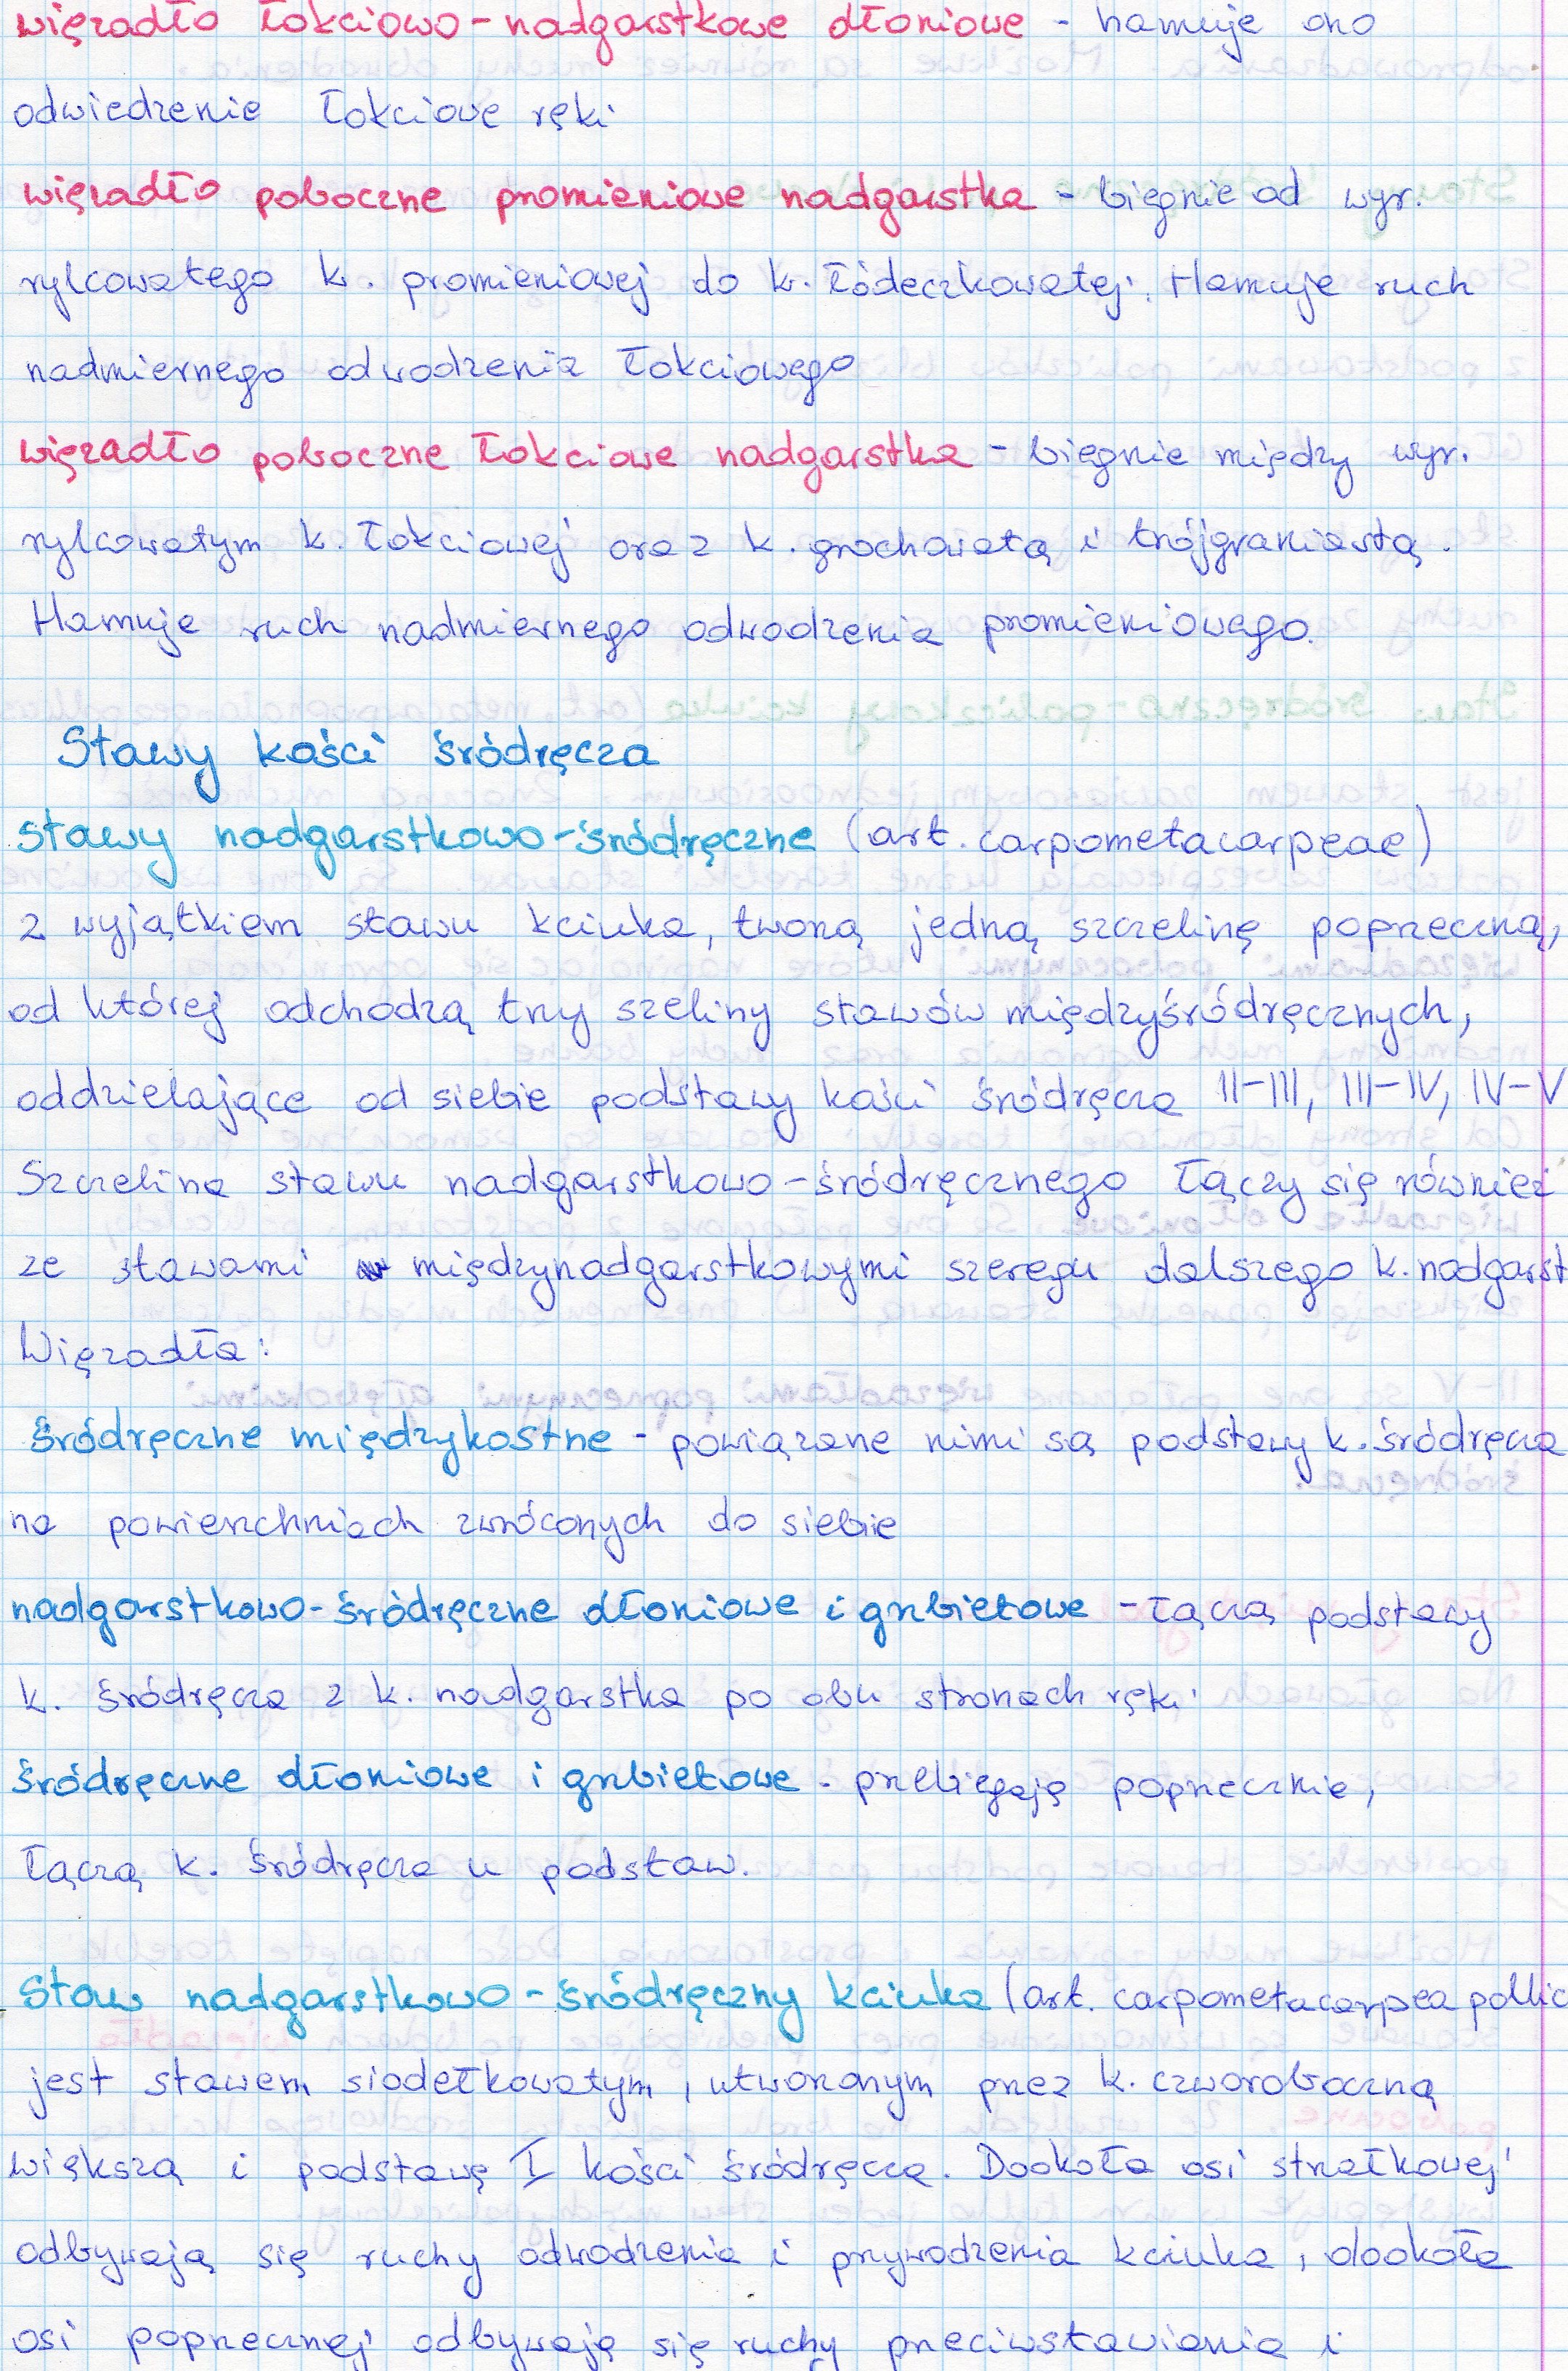 więzadło łokciowo-nadgarstkowe dłoniowe - hamuje ono
odwiedzenie łokciowe ręki
więzadło poboczne promieniowe nadgarstka - biegnie od wyr.
rylcowatego k. promieniowej do k. łódeczkowatej. Hamuje ruch
nadmiernego odwodzenia łokciowego
więzadło poboczne łokciowe nadgarstka - biegnie między wyr.
rylcowatym k. łokciowej oraz k. grochowatą i trójgraniastą.
Hamuje ruch nadmiernego odwodzenia promieniowego.
Stawy kości śródręcza
stawy nadgarstkowo-śródręczne (art. carpometacarpeae)
z wyjątkiem stawu kciuka, tworzą jedną szczelinę poprzeczną,
od której odchodzą trzy szeliny stawów międzyśródręcznych,
oddzielające od siebie podstawy kości śródręcza II-III, III-IV, IV-V
Szczelina stawu nadgarstkowo-śródręcznego łączy się również
ze stawami międzynadgarstkowymi szeregu dalszego k. nadgarst
Więzadła:
śródręczne międzykostne - powiązane nimi są podstawy k. śródręcza
na powierzchniach zwróconych do siebie
nadgarstkowo-śródręczne dłoniowe i grzbietowe - łączą podstawy
k. śródręcza z k. nadgarstka po obu stronach ręki
śródręczne dłoniowe i grzbietowe - przebiegają poprzecznie,
łączą k. śródręcza u podstaw.
Staw nadgarstkowo-śródręczny kciuka (art. carpometacarpea pollic
jest stawem siodełkowatym, utworzonym przez k. czworoboczną
większą i podstawę I kości śródręcza. Dookoła osi strzałkowej
odbywają się ruchy odwodzenia i przywodzenia kciuka, dookoła
osi poprzecznej odbywają się ruchy przeciwstawiania i